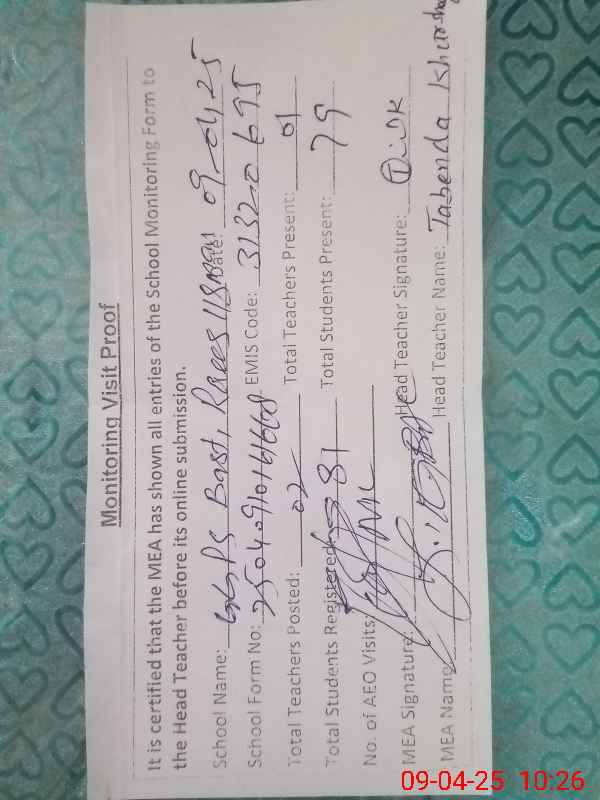 Monitoring Visit Proof
It is certified that the MEA has shown all entries of the School Monitoring Form to
the Head Teacher before its online submission.
School Name: GGPS Basti Raees Date: 09-04-25
School Form No: EMIS Code: 31320695
Total Teachers Posted: 02 Total Teachers Present: 01
Total Students Registered: 81 Total Students Present: 79
No. of AEO Visits: NIL
MEA Signature: Head Teacher Signature:
MEA Name: Head Teacher Name: Tabenda Khurshed
09-04-25 10:26